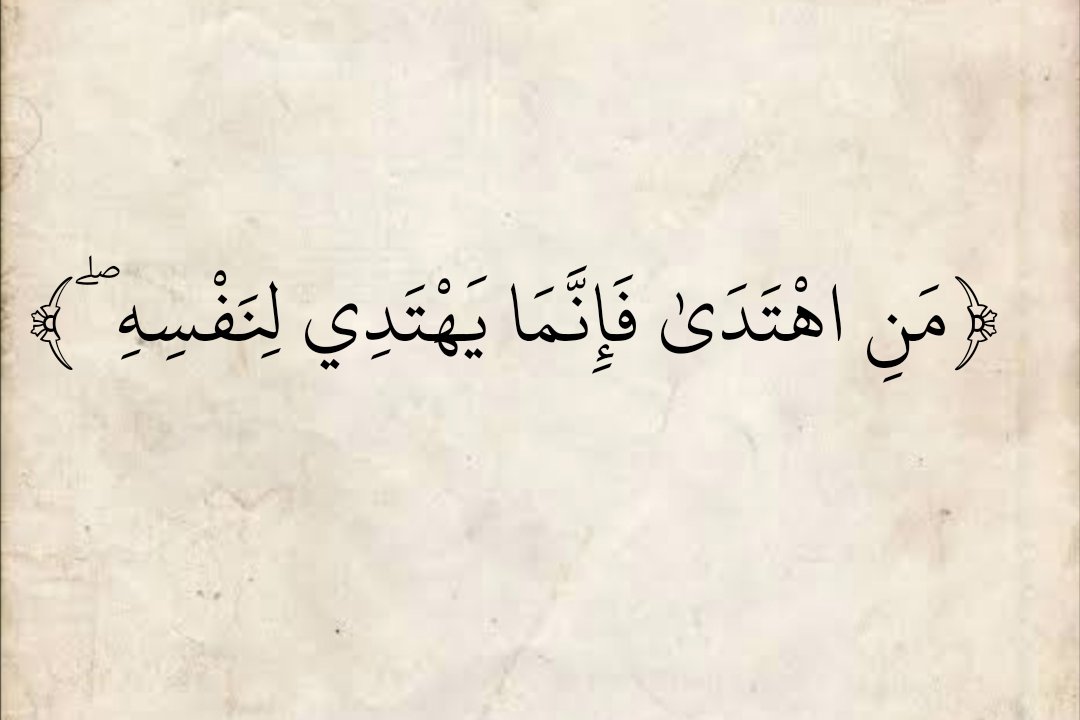 ﴿مَنِ اهْتَدَىٰ فَإِنَّمَا يَهْتَدِي لِنَفْسِهِ ۖ﴾